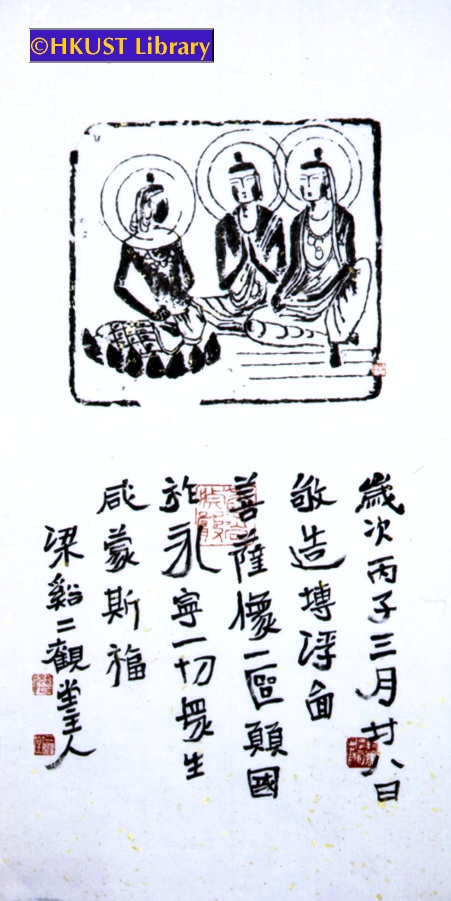 ©HKUST Library
歲次丙子三月廿八日
敬造塼浮面
菩薩像一區願國
祚永寧一切眾生
咸蒙斯福
梁谿二觀堂主人